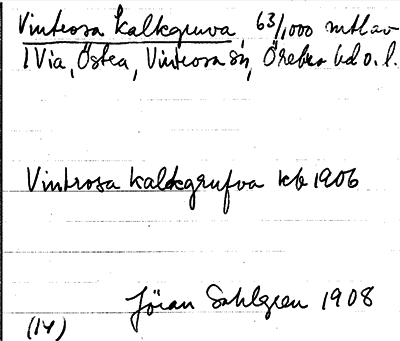 Vintrosa Kalkgruva, 63/1,000 mtl av
1 Via, Östra, Vintrosa sn, Örebro hd o. l.
Vintrosa Kalkgrufva kb 1906
Jöran Sahlgren 1908
(14)